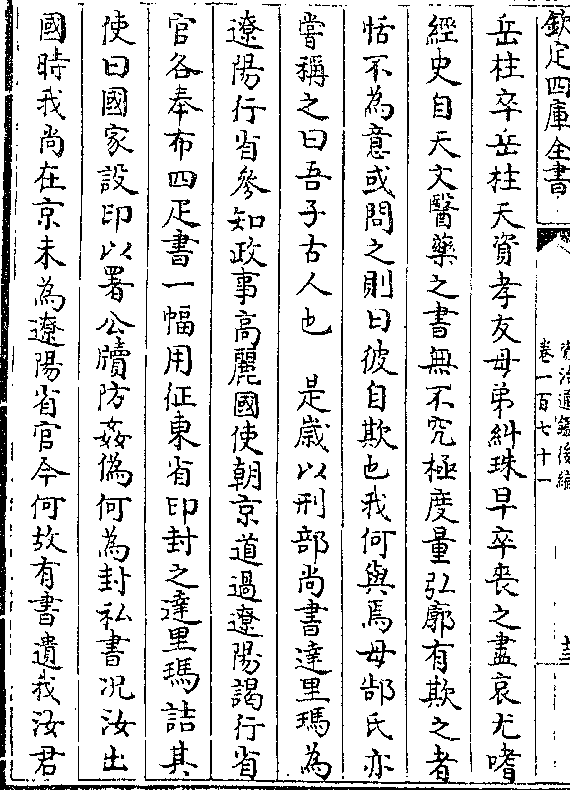 欽定四庫全書
資治通鑑後編
卷一百七十一
岳柱卒岳柱天資孝友母弟糾珠早卒喪之盡哀尤嗜
經史自天文醫藥之書無不究極度量弘廓有欺之者
恬不為意或問之則曰彼自欺也我何與焉母郜氏亦
嘗稱之曰吾子古人也　是歲以刑部尚書達里瑪為
遼陽行省參知政事高麗國使朝京道過遼陽謁行省
官各奉布四疋書一幅用征東省印封之達里瑪詰其
使曰國家設印以署公牘防姦偽何為封私書况汝出
國時我尚在京未為遼陽省官今何故有書遺我汝君